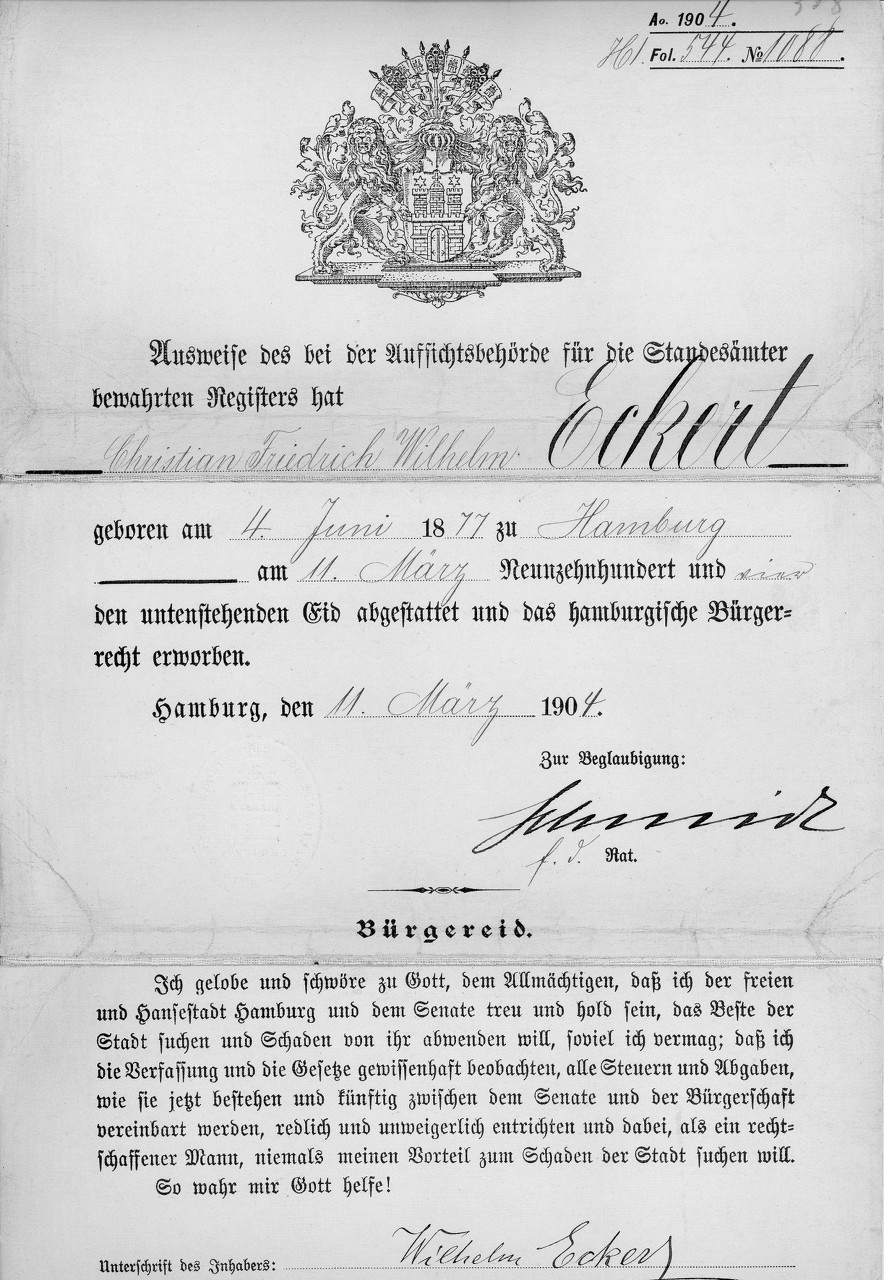 Ao. 1904.
Fol. 544. № 1088.
Ausweise des bei der Aufsichtsbehörde für die Standesämter
bewahrten Registers hat
Christian Friedrich Wilhelm Eckert
geboren am 4. Juni 1877 zu Hamburg
am 11. März Neunzehnhundert und vier
den untenstehenden Eid abgestattet und das hamburgische Bürger=
recht erworben.
Hamburg, den 11. März 1904.
Zur Beglaubigung:
Schmidt
f. d. Rat.
Bürgereid.
Ich gelobe und schwöre zu Gott, dem Allmächtigen, daß ich der freien
und Hansestadt Hamburg und dem Senate treu und hold sein, das Beste der
Stadt suchen und Schaden von ihr abwenden will, soviel ich vermag; daß ich
die Verfassung und die Gesetze gewissenhaft beobachten, alle Steuern und Abgaben,
wie sie jetzt bestehen und künftig zwischen dem Senate und der Bürgerschaft
vereinbart werden, redlich und unweigerlich entrichten und dabei, als ein recht=
schaffener Mann, niemals meinen Vorteil zum Schaden der Stadt suchen will.
So wahr mir Gott helfe!
Unterschrift des Inhabers: Wilhelm Eckert